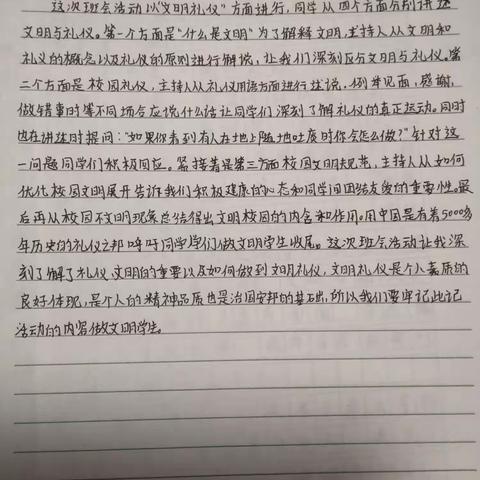 这次班会活动以"文明礼仪"方面进行,同学从四个方面分别讲述
文明与礼仪。第一个方面是"什么是文明"为了解释文明,主持人从文明和
礼义的概念以及礼仪的原则进行解说,让我们深刻反与文明与礼仪。第
二个方面是校园礼仪,主持人从礼仪用语方面进行述说,例举见面,感谢,
做错事时等不同场合应说什么话让同学们深刻了解礼仪的真正运动。同时
也在讲述时提问:"如果你看到有人在地上随地吐痰时你会怎么做?"针对这
一问题同学们积极回应。紧接着是第三方面校园文明规范,主持人从如何
优化校园文明展开告诉我们积极健康的心态和同学间团结友爱的重要性。最
后再从校园不文明现象总结得出文明校园的内含和作用。用中国是有着5000多
年历史的礼仪之邦呼吁同学们做文明学生收尾。这次班会活动让我深
刻了解了礼仪文明的重要以及如何做到文明礼仪,文明礼仪是个人素质的
良好体现,是个人的精神品质也是治国安邦的基础,所以我们要牢记此记
活动的内容做文明学生。